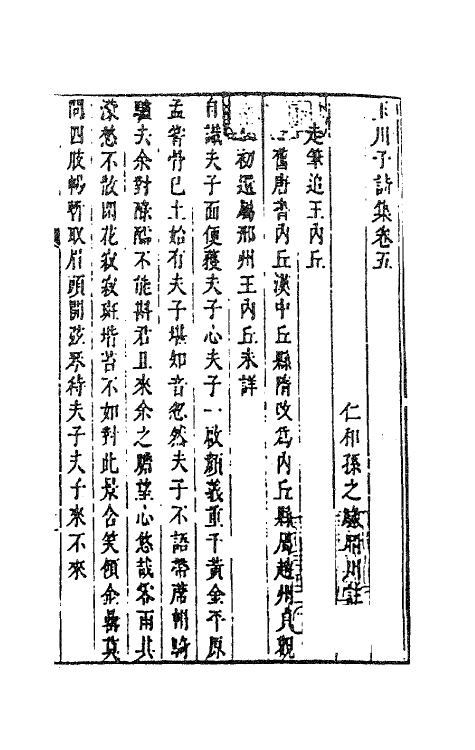 玉川子詩集卷五
仁和孫之騄晴川註
走筆追王內丘
舊唐書內丘漢中丘縣隋改爲內丘縣屬趙州貞觀
初還屬邢州王內丘未詳
自識夫子面便獲夫子心夫子一啟顏義重千黃金平原
孟嘗骨已土始有夫子堪知音忽然夫子不語帶席帽騎
驢去余對醁醽不能斟君且來余之瞻望心悠哉零雨其
濛愁不散閒花寂寂斑堦苔不如對此景含笑傾金罍莫
問四肢暢暫取眉頭開弦琴待夫子夫子來不來